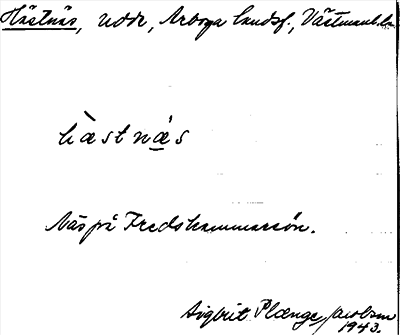 Hästnäs, udde, Arboga landsf., Västmanl. län
hæ̀stnä́s
Näs på Fredshammarsön.
Sigbrit Plænge Jacobson
1943.